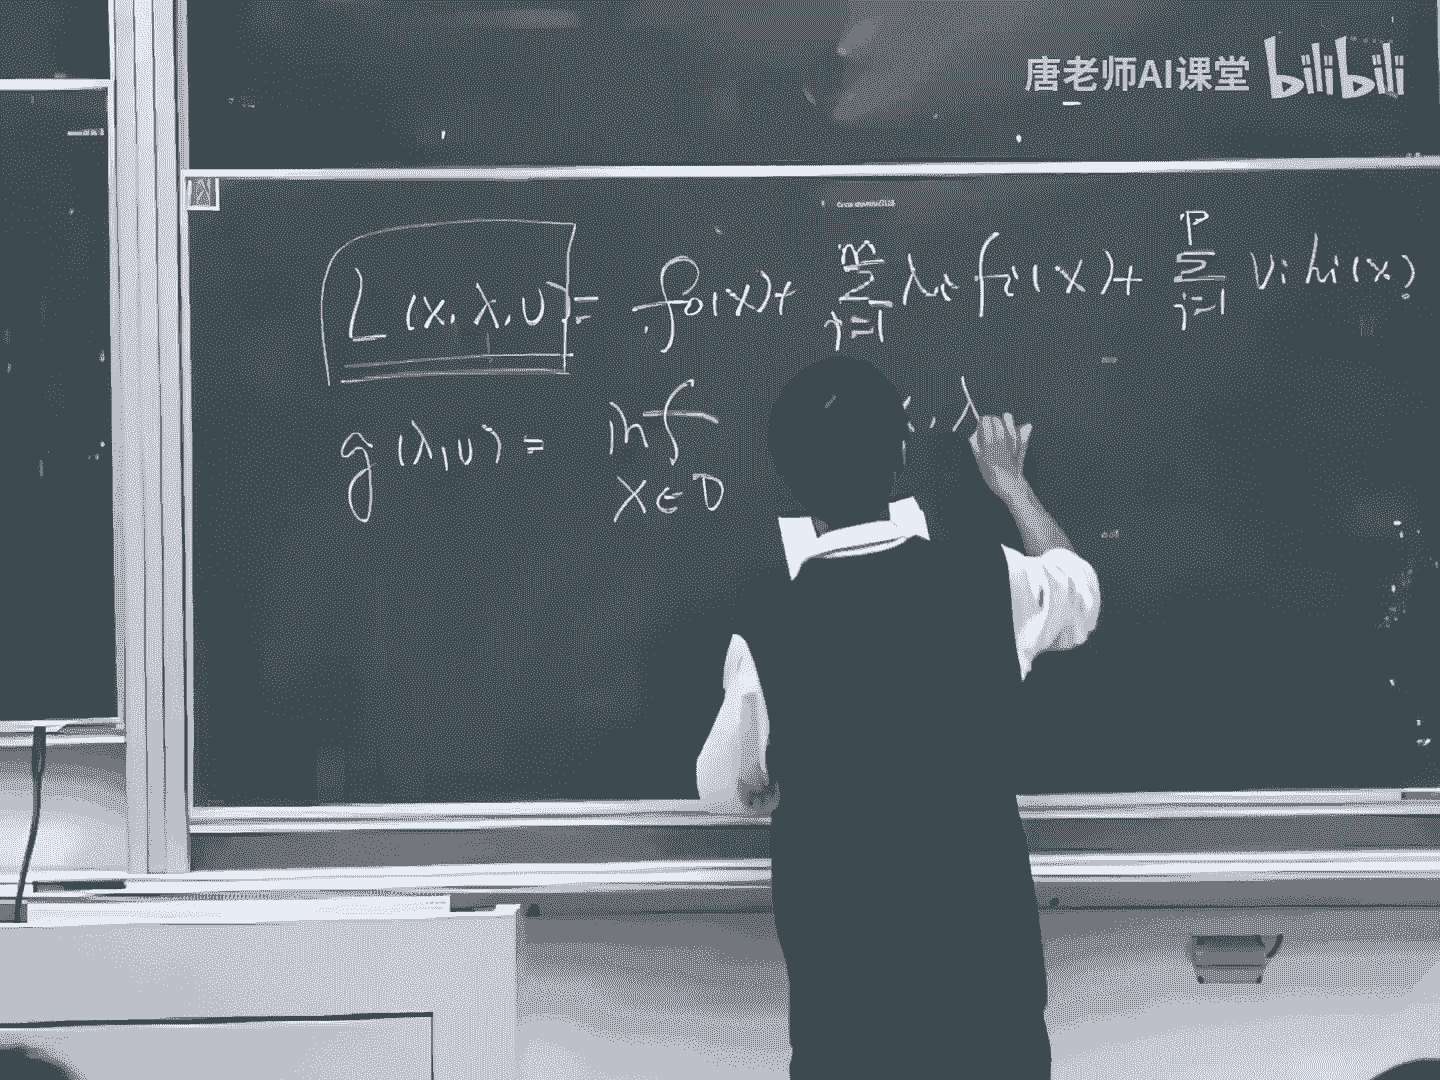 唐老师AI课堂 bilibili
L(x, λ, υ) = f₀(x) + ∑ᵢ₌₁ᵐ λᵢ fᵢ(x) + ∑ᵢ₌₁ᵖ νᵢ hᵢ(x)
g(λ, υ) = inf λ
x ∈ D